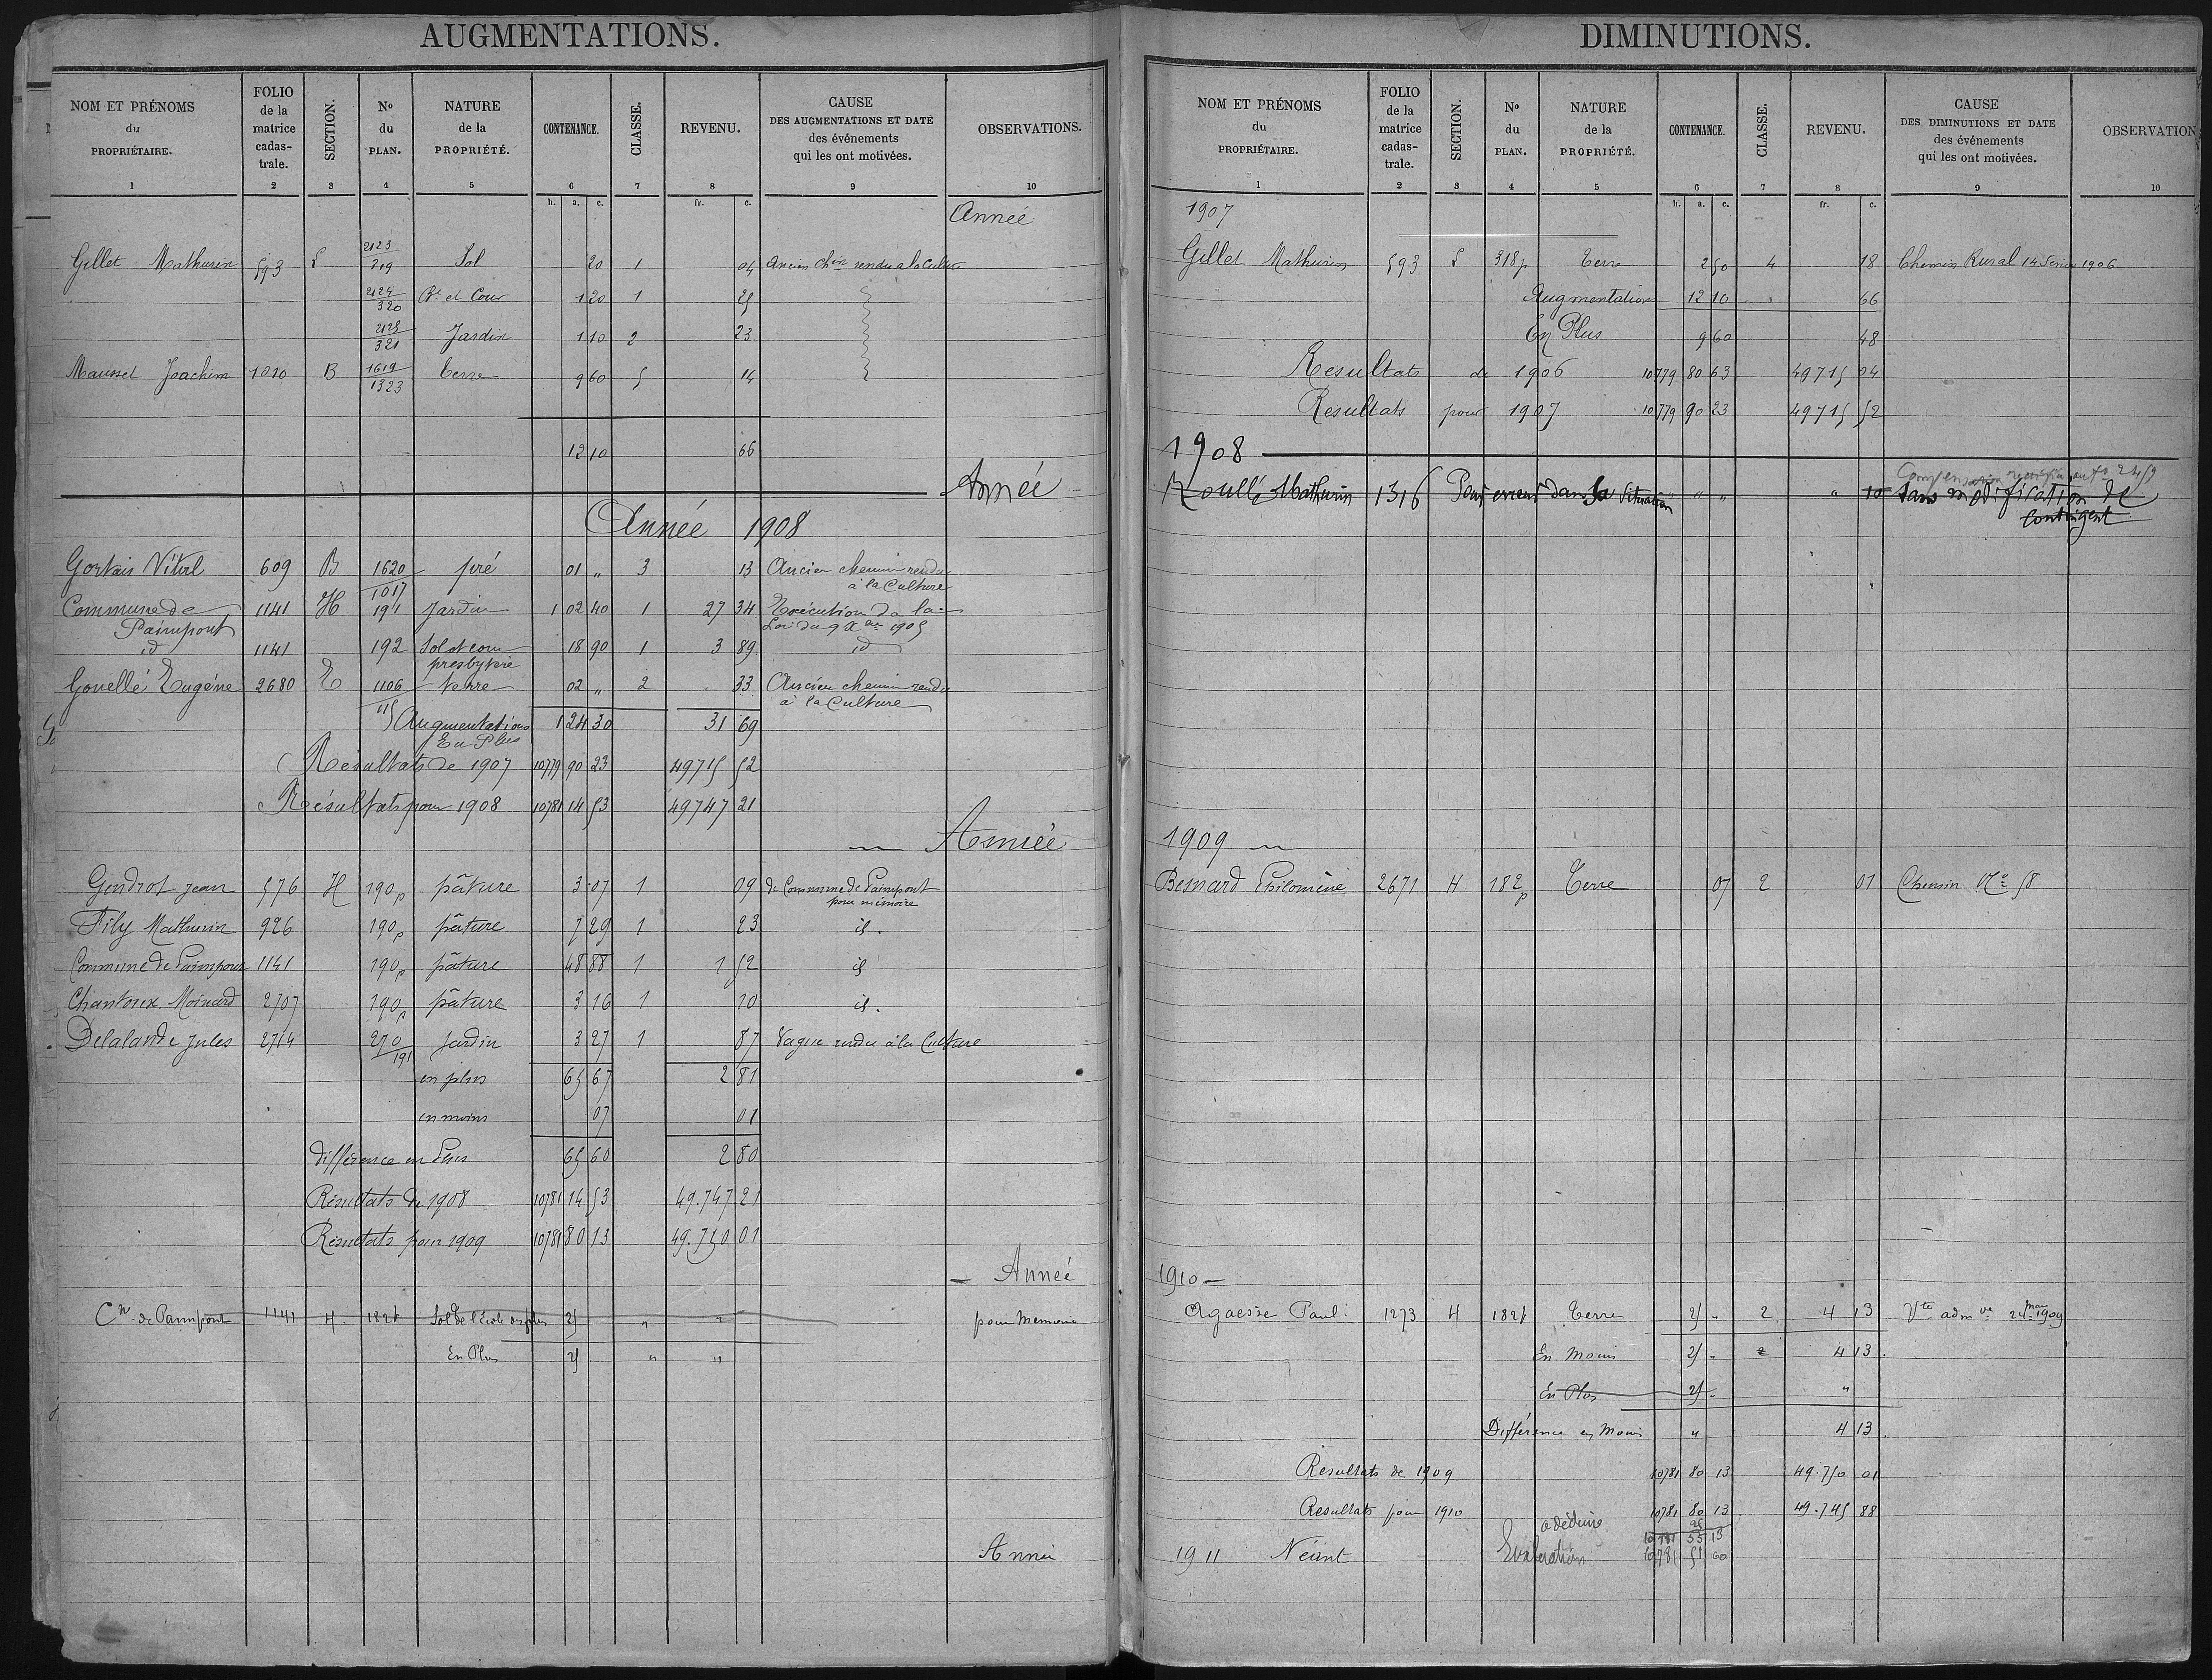 AUGMENTATIONS.
NOM ET PRÉNOMS du PROPRIÉTAIRE. 1
FOLIO de la matrice cadas-trale. 2
SECTION. 3
No du PLAN. 4
NATURE de la PROPRIÉTÉ. 5
CONTENANCE. 6
CLASSE. 7
REVENU. 8
CAUSE DES AUGMENTATIONS ET DATE des événements qui les ont motivées. 9
OBSERVATIONS. 10
h. a. c. fr. c.
Année
Gillet Mathurin 593 S 2123/319 Sol 20 1 04 Ancien Chin rendu a la Culture
2124/320 Bt et Cour 1 20 1 25
2125/321 Jardin 1 10 2 23
Maussel Joachim 1010 B 1619/1323 Terre 9 60 5 14
12 10 66
Année
Année 1908
609 B 1620/1017 pré 01 " 3 13 Ancien chemin rendu
à la Culture
Commune de 1141 H 191 Jardin 1 02 40 1 27 34 Exécution de la
Paimpont Loi du 9 Xbre 1905
id 1141 192 Sol et cour 18 90 1 3 89 id
presbytère
Gouellé Eugène 2680 E 1106/115 terre 02 " 2 33 Ancien chemin rendu
à la Culture
Augmentations 1 24 30 31 69
En Plus
Résultats de 1907 10779 90 23 49715 52
Résultats pour 1908 10781 14 53 49747 21
Année
Gendrot Jean 576 H 190p pâture 3 07 1 09 de Commune de Paimpont
pour mémoire
Fily Mathurin 926 190p pâture 7 29 1 23 id.
Commune de Paimpont 1141 190p pâture 48 88 1 1 52 id
Chantoux Moinard 2707 190p pâture 3 16 1 10 id.
Delalande Jules 2714 270/191 Jardin 3 27 1 87 Vague rendu à la Culture
en plus 65 67 2 81
en moins 07 01
différence en Plus 65 60 2 80
Résultats de 1908 10781 14 53 49.747 21
Résultats pour 1909 10781 80 13 49.750 01
Année
Cne de Paimpont 1141 H. 182p Sol de l'école des filles 25 " " pour Memoire
En Plus 25 " "
Année
DIMINUTIONS.
NOM ET PRÉNOMS du PROPRIÉTAIRE. 1
FOLIO de la matrice cadas-trale. 2
SECTION. 3
No du PLAN. 4
NATURE de la PROPRIÉTÉ. 5
CONTENANCE. 6
CLASSE. 7
REVENU. 8
CAUSE DES DIMINUTIONS ET DATE des événements qui les ont motivées. 9
OBSERVATION 10
h. a. c. fr. c.
1907
Gillet Mathurin 593 S 318p Terre 2 50 4 18 Chemin Rural 14 1906
Augmentations 12 10 " 66
En Plus 9 60 48
Resultats de 1906 10779 80 63 49715 04
Resultats pour 1907 10779 90 23 49715 52
1908
Compensation 2459
Roullé Mathurin 1316 Pour erreur dans la Situation " " " 10 Sans modification de
contingent
1909
Besnard Philomène 2671 H 182p Terre 07 2 01 Chemin No 58
1910
Agaesse Paul 1273 H 182p Terre 25 " 2 4 13 Vte admve 24 mai 1909
En Moins 25 " 2 4 13.
En Plus 25 " "
Différence en Moins " 4 13.
Resultats de 1909 10781 80 13 49.750 01
Resultats pour 1910 10781 80 13 49.745 88
a déduire 25
10781 55 13
1911 Néant Evaluation 10781 51 60